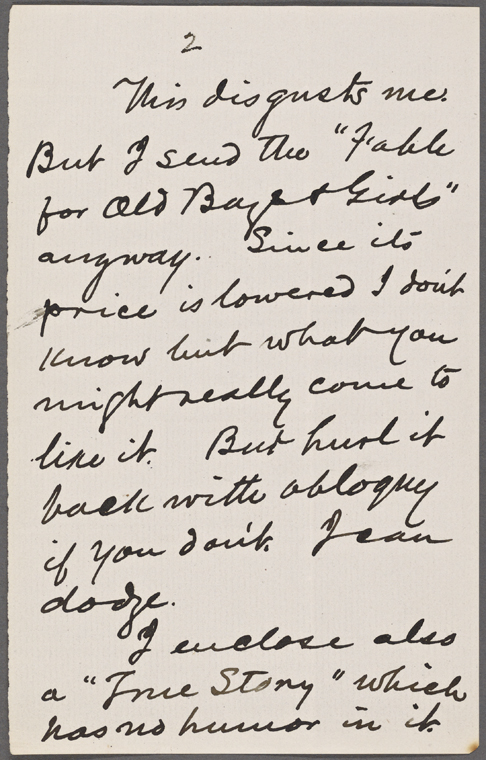 2
This disgusts me.
But I send the "Fable
for Old Boys & Girls"
anyway. Since its
price is lowered I don't
know but what you
might really come to
like it. But hurl it
back with obloquy
if you don't. I can
dodge.
I enclose also
a "True Story" which
has no humor in it.